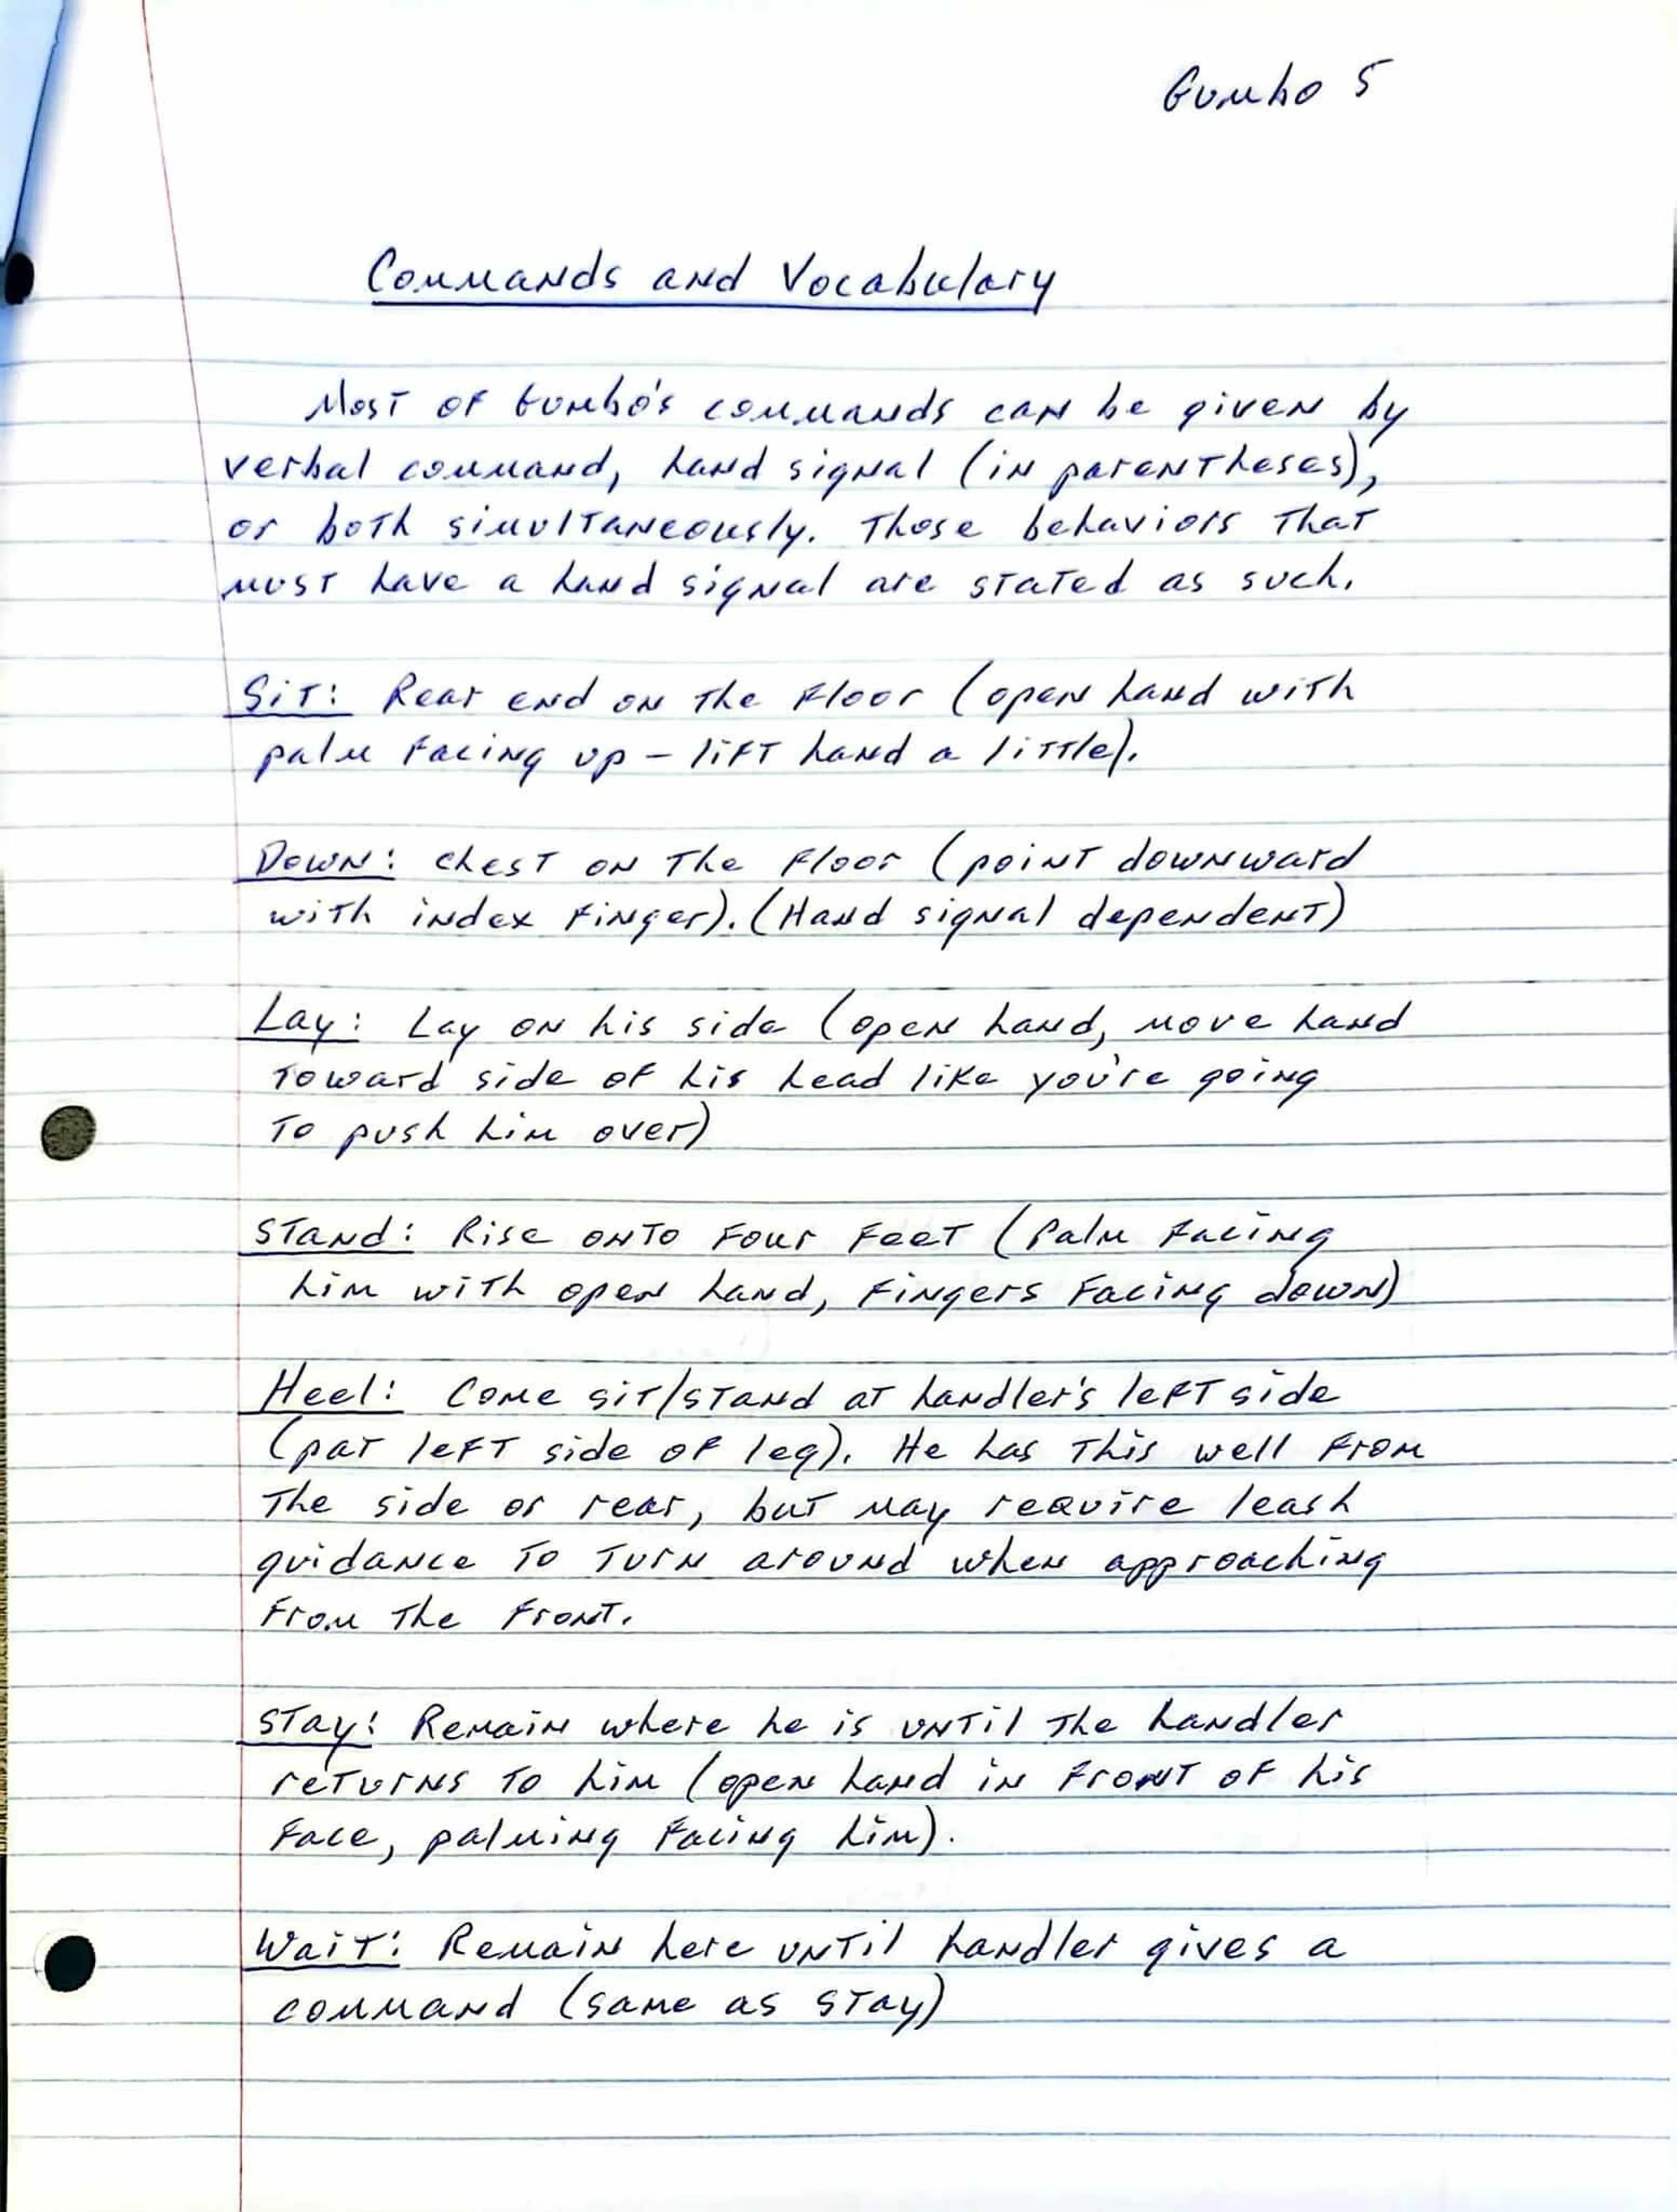 Gumbo 5
Commands and Vocabulary
Most of Gumbo's commands can be given by
verbal command, hand signal (in parentheses),
or both simultaneously. Those behaviors that
must have a hand signal are stated as such.
Sit: Rear end on the floor (open hand with
palm facing up - lift hand a little).
Down: Chest on the floor (point downward
with index finger). (Hand signal dependent)
Lay: Lay on his side (open hand, move hand
toward side of his head like you're going
to push him over)
Stand: Rise onto four feet (Palm facing
him with open hand, fingers facing down)
Heel: Come sit/stand at handler's left side
(pat left side of leg). He has this well from
the side or rear, but may require leash
guidance to turn around when approaching
from the front.
Stay: Remain where he is until the handler
returns to him (open hand in front of his
face, palming facing him).
Wait: Remain here until handler gives a
command (same as stay)